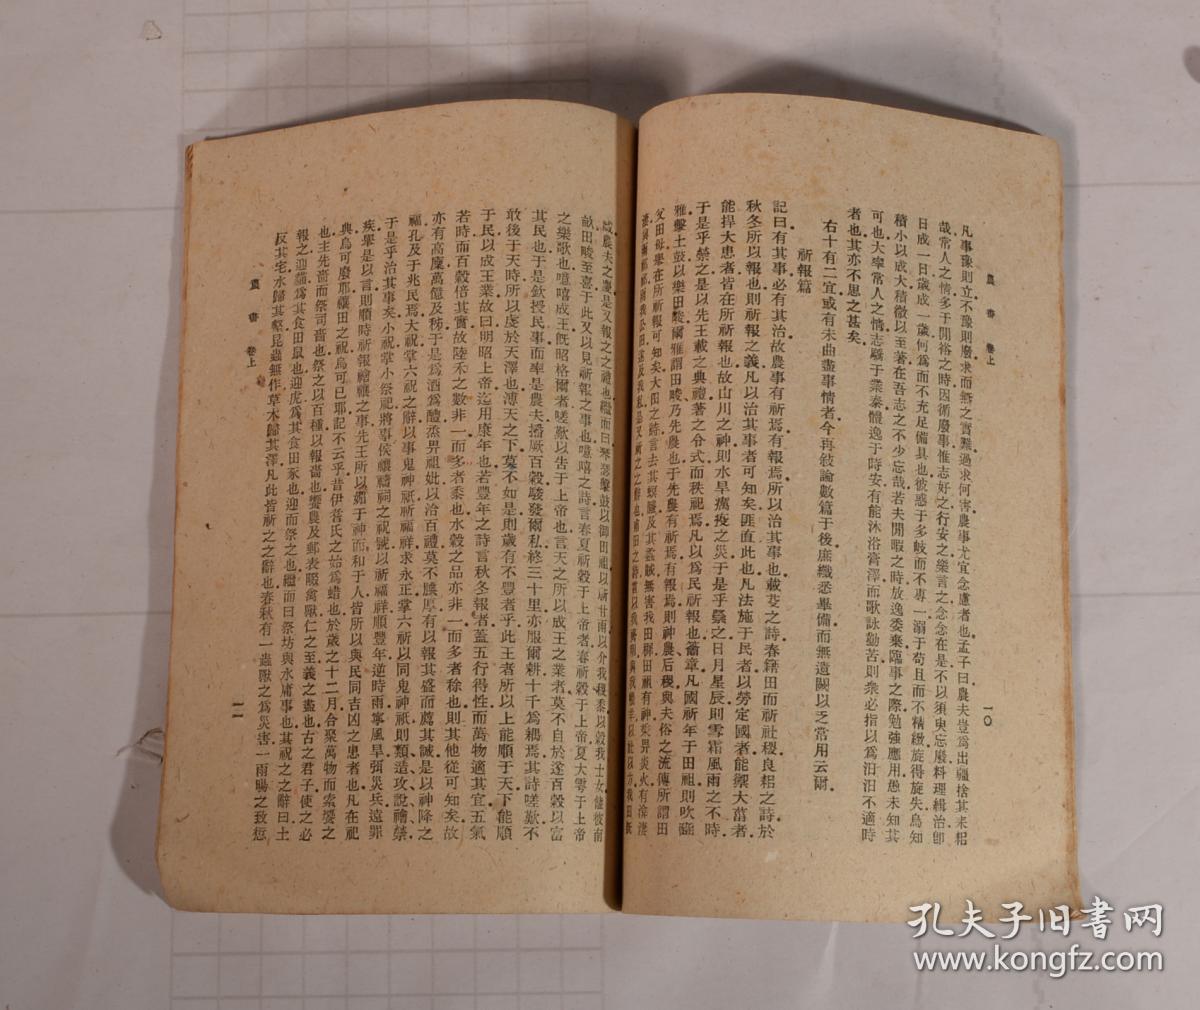 農書 卷上
一〇
凡事豫則立不豫則廢求而無之實難過求何害農事尤宜念慮者也孟子曰農夫豈爲出疆捨其耒耜
哉常人之情多于閒裕之時因循廢事惟志好之行安之樂言之念念在是不以須臾忘廢料理緝治卽
日成一日歲成一歲何爲而不充足備具也彼惑于多岐而不專一溺于苟且而不精緻旋得旋失烏知
積小以成大積微以至著在吾志之不少忘哉若夫閒暇之時放逸委棄臨事之際勉強應用愚未知其
可也大率常人之情志驕于業泰體逸于時安有能沐浴膏澤而歌詠勤苦則衆必指以爲汨汨不適時
者也其亦不思之甚矣
右十有二宜或有未曲盡事情者今再敍論數篇于後庶纖悉畢備而無遺闕以乏常用云爾
祈報篇
記曰有其事必有其治故農事有祈焉有報焉所以治其事也載芟之詩春籍田而祈社稷良耜之詩於
秋冬所以報也則祈報之義凡以治其事者可知矣匪直此也凡法施于民者以勞定國者能禦大菑者
能捍大患者皆在所祈報也故山川之神則水旱癘疫之災于是乎禜之日月星辰則雪霜風雨之不時
于是乎禜之是以先王載之典禮著之令式而秩祀焉凡以爲民祈報也籥章凡國祈年于田祖則吹豳
雅擊土鼓以樂田畯爾雅謂田畯乃先農也于先農有祈焉有報焉則神農后稷與夫俗之流傳所謂田
父田母舉在所祈報可知矣大田之詩言去其螟螣及其蟊賊無害我田穉田祖有神秉畀炎火有渰淒
淒興雨祁祁雨我公田遂及我私是又祈之之辭也甫田之詩言以我齊明與我犧羊以社以方我田旣
臧農夫之慶是又報之之禮也繼而曰琴瑟擊鼓以御田祖以祈甘雨以介我稷黍以穀我士女饁彼南
畝田畯至喜于此又以見祈報之事也噫嘻之詩言春夏祈穀于上帝者春祈穀于上帝夏大雩于上帝
之樂歌也噫嘻成王旣昭格爾者嗟歎以告于上帝也言天之所以成王之業者莫不自於遂百穀以富
其民也于是欽授民事而率是農夫播厥百穀駿發爾私終三十里亦服爾耕十千爲耦焉其詩嗟歎不
敢後于天時所以虔於天澤也溥天之下莫不如是則歲有不豐者乎此王者所以上能順于天下能順
于民以成王業故曰明昭上帝迄用康年也若豐年之詩言秋冬報者蓋五行得性而萬物適其宜五氣
若時而百穀倍其實故陸禾之數非一而多者黍也水穀之品亦非一而多者稌也則其他從可知矣故
亦有高廩萬億及秭于是爲酒爲醴烝畀祖妣以洽百禮莫不腆厚有以報其盛而薦其誠是以神降之
福孔及于兆民焉大祝掌六祝之辭以事鬼神祇祈福祥求永正掌六祈以同鬼神祇則類造攻說禬禜
于是乎治其事矣小祝掌小祭祀將事侯禳禱祠之祝號以祈福祥順豐年逆時雨寧風旱弭災兵遠罪
疾舉是以言則順時祈報禬禳之事先王所以媚于神而和于人皆所以與民同吉凶之患者也凡在祀
典烏可廢耶禳田之祝烏可已耶記不云乎昔伊耆氏之始爲蜡也於歲之十二月合聚萬物而索饗之
也主先嗇而祭司嗇也祭之以百種以報嗇也饗農及郵表畷禽獸仁之至義之盡也古之君子使之必
報之迎貓爲其食田鼠也迎虎爲其食田豕也迎而祭之也繼而曰祭坊與水庸事也其祝之之辭曰土
反其宅水歸其壑昆蟲無作草木歸其澤凡此皆祈之之辭也春秋有一蟲獸之爲災害一雨暘之致愆
農書 卷上
一一
孔夫子旧书网
www.kongfz.com